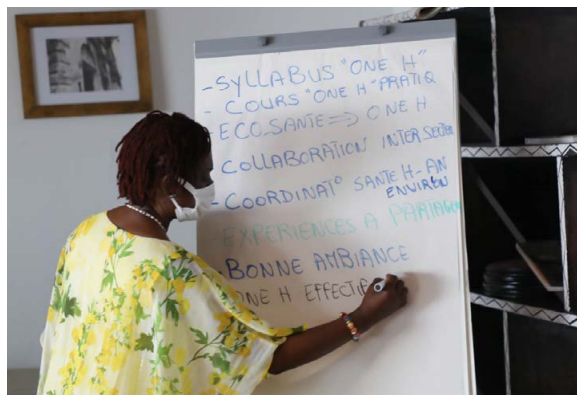 - SYLLABUS "ONE H"
- COURS "ONE H" PRATIQ
- ECO.SANTE => ONE H
COLLABORATION INTERSECTOR
- COORDINAT° SANTE H-AN
ENVIRON
- EXPERIENCES A PARTAGER
BONNE AMBIANCE
ONE H EFFECTIF